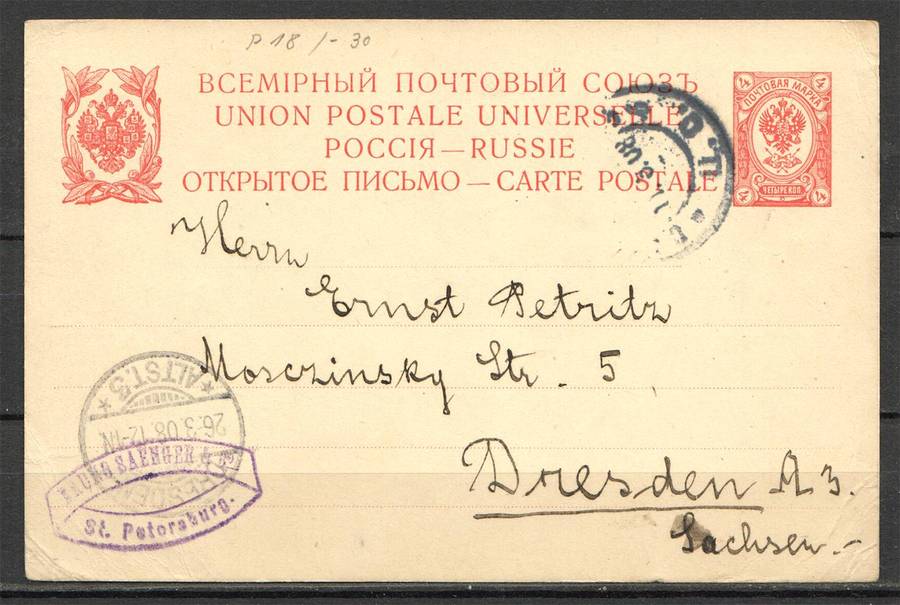 P 18 /- 30
ВСЕМІРНЫЙ ПОЧТОВЫЙ СОЮЗЪ
UNION POSTALE UNIVERSELLE
РОССІЯ — RUSSIE
ОТКРЫТОЕ ПИСЬМО — CARTE POSTALE
4 4
ПОЧТОВАЯ МАРКА
ЧЕТЫРЕ КОП.
4 4
Herrn
Ernst Petritz
Mosczinsky Str. 5
Dresden A 3.
Sachsen.-
* ALTST. 3 *
26.3.08.12-1N
DRESDEN
BRUNO SAENGER & Co
St. Petersburg.